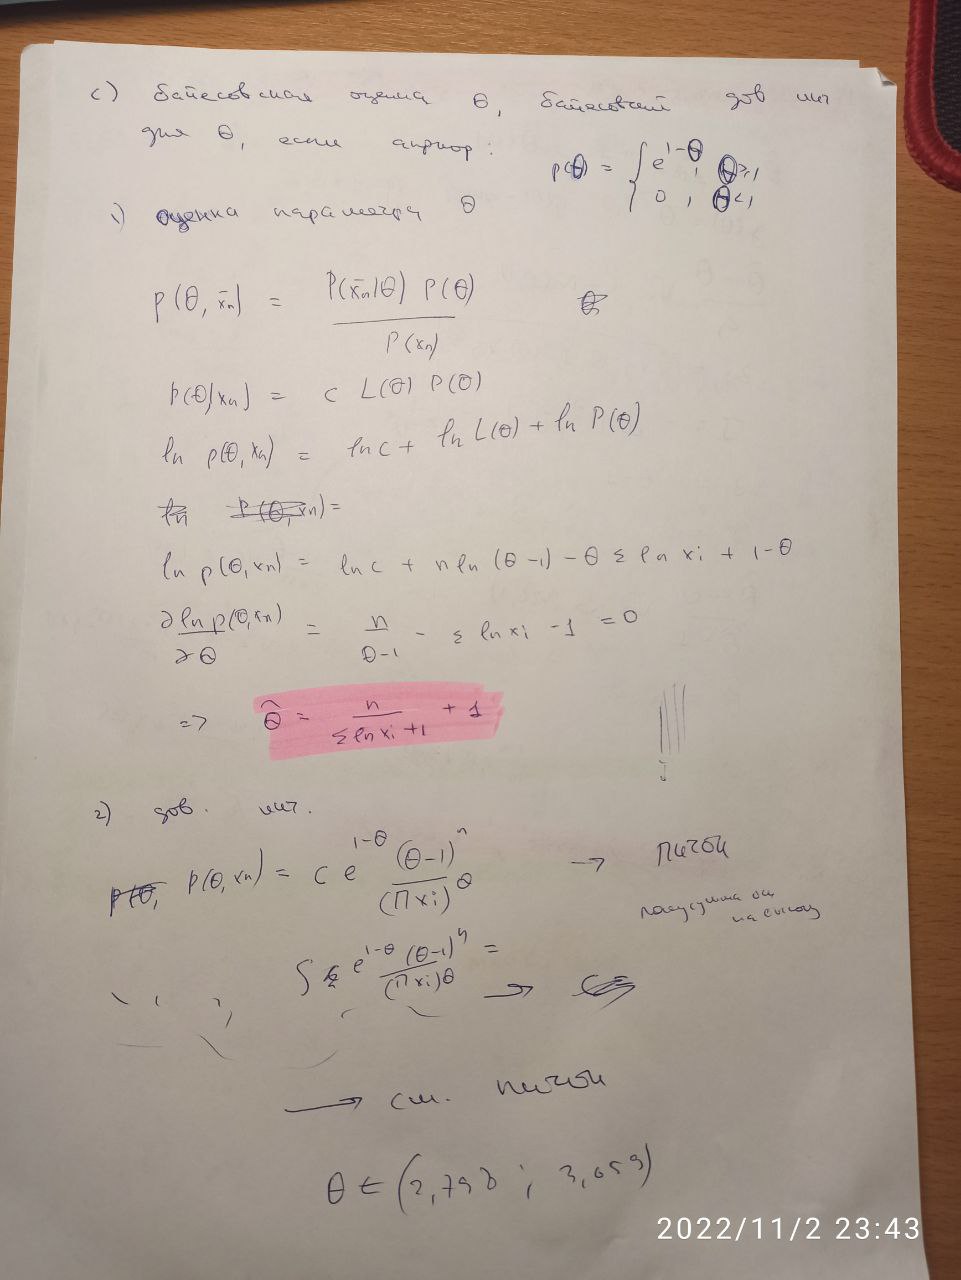 c) байесовская оценка θ, байесовский дов инт
для θ, если априор:
p(θ) = { e^{1-θ}, θ≥1
0, θ<1
1) оценка параметра θ
p(θ, x̄n) = P(x̄n|θ) P(θ) / P(xn)
p(θ|xn) = c L(θ) P(θ)
ln p(θ, xn) = ln c + ln L(θ) + ln P(θ)
ln p(θ, xn) = ln c + n ln (θ-1) - θ Σ ln xi + 1-θ
∂ ln p(θ, xn) / ∂θ = n / θ-1 - Σ ln xi - 1 = 0
=> θ̂ = n / Σ ln xi + 1 + 1
2) дов. инт.
p(θ, xn) = c e^{1-θ} (θ-1)^n / (Π xi)^θ → питон
∫ e^{1-θ} (θ-1)^n / (Π xi)^θ = →
→ см. питон
θ ∈ (2,798 ; 3,059)
2022/11/2 23:43